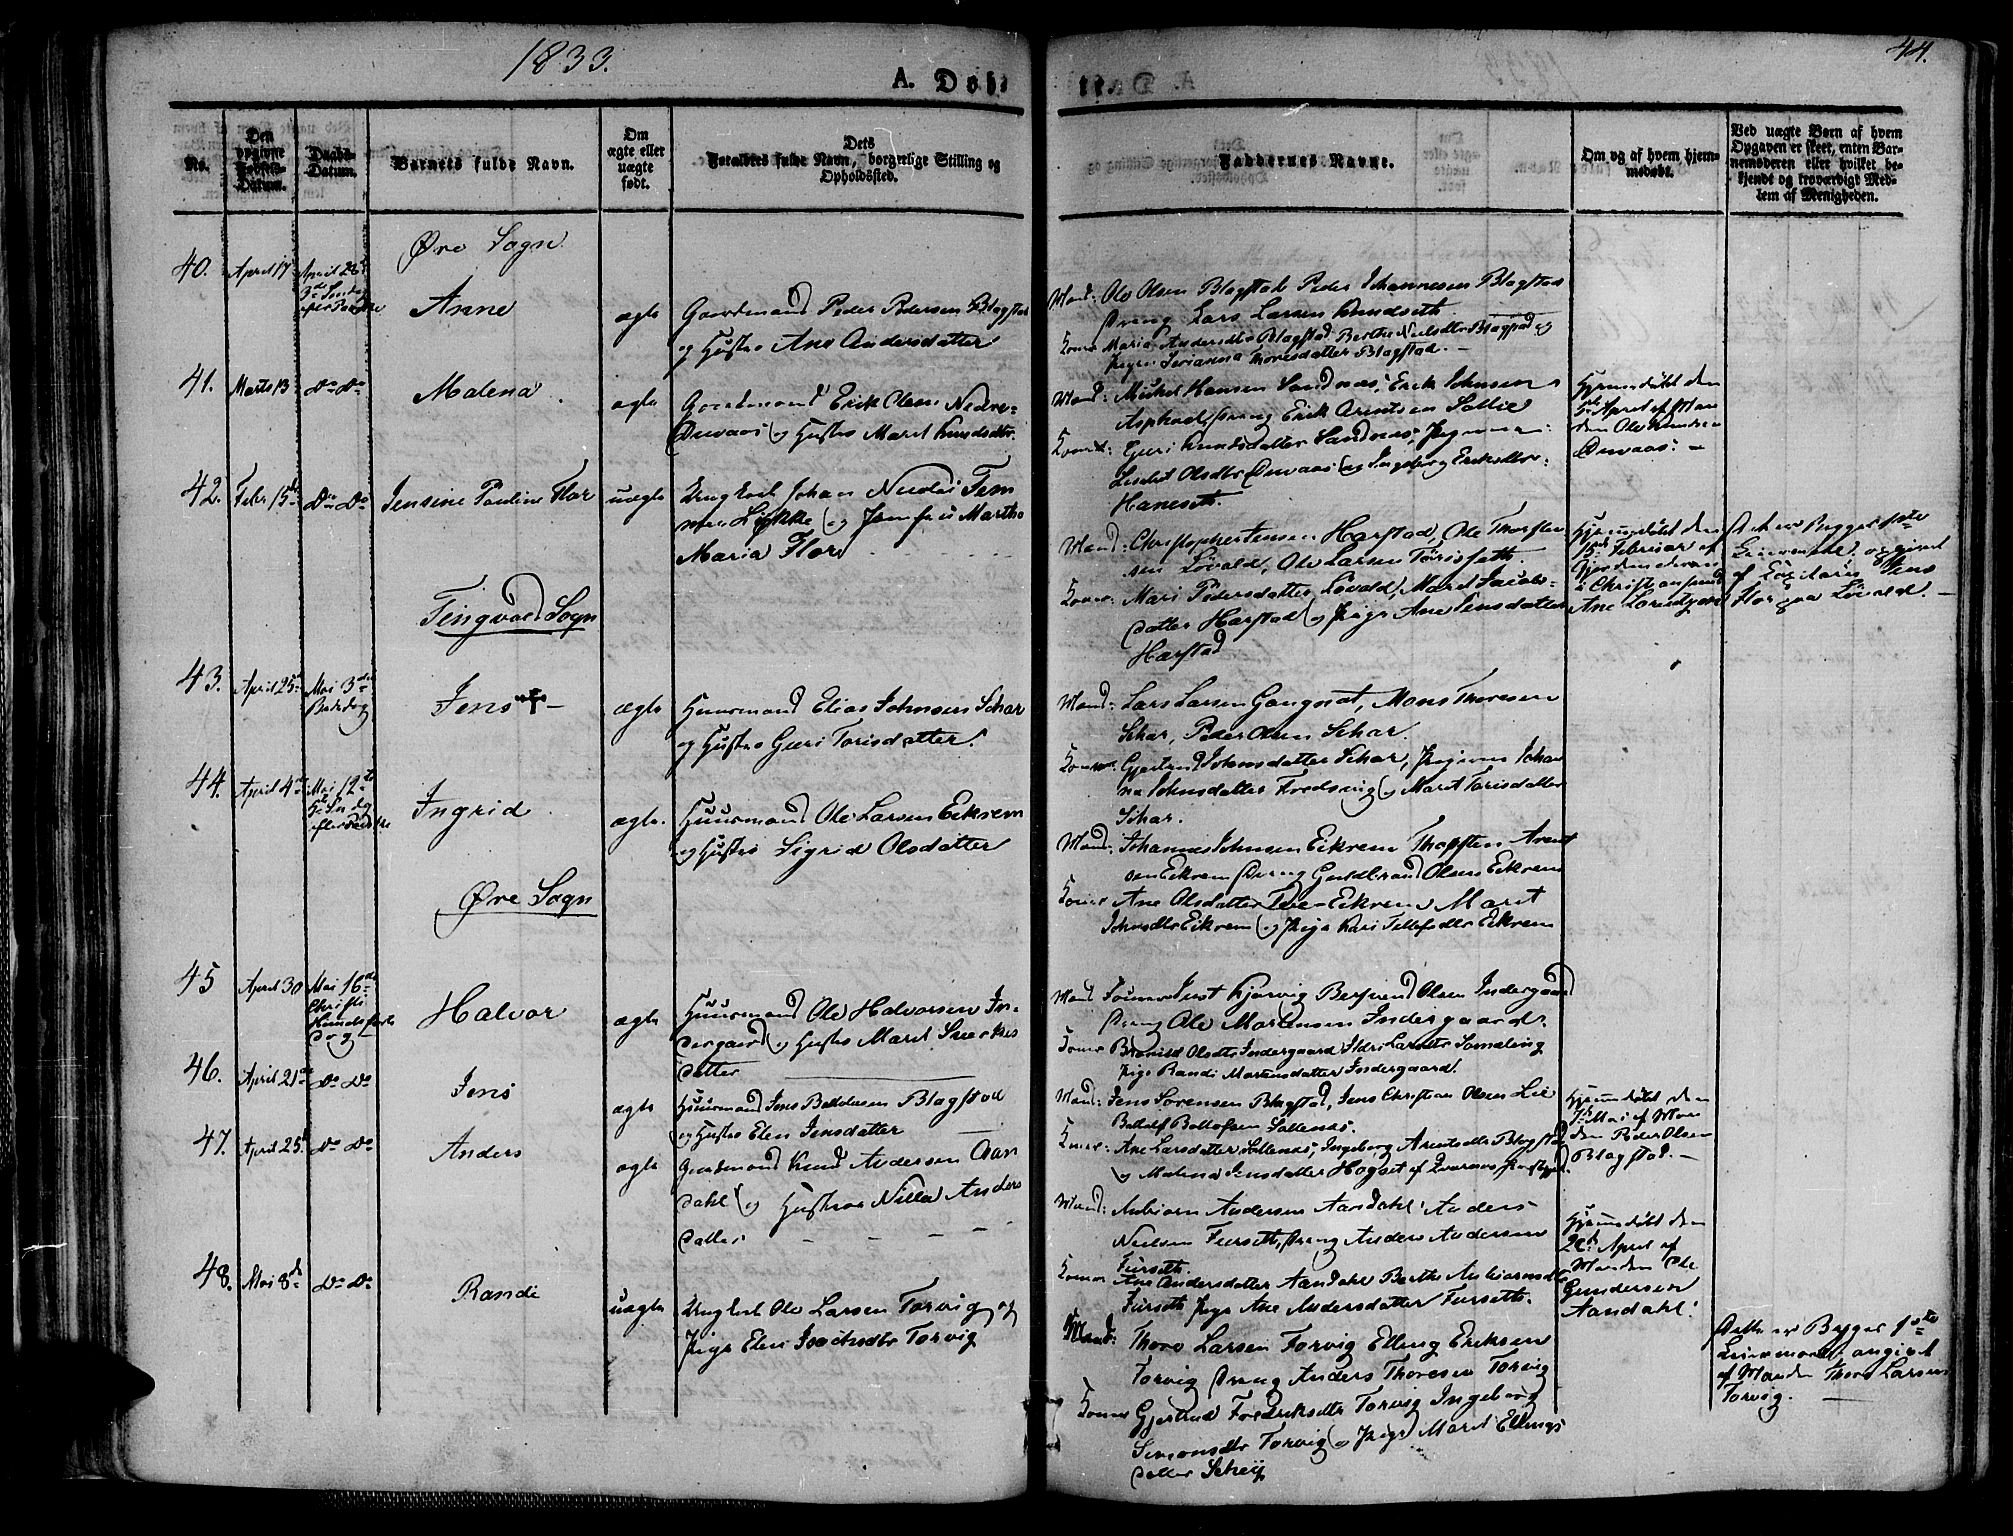 1833.
44.
A. Døbte.
No.
Den opgivne Fødsels-Datum.
Daabs-Datum.
Barnets fulde Navn.
Om ægte eller uægte født.
Dets Forældres fulde Navn, borgerlige Stilling og Opholdssted.
Faddernes Navne.
Om og af hvem hjemmedøbt.
Ved uægte Børn af hvem Opgaven er skeet, enten Barnemoderen eller hvilket bekjendt og troværdigt Medlem af Menigheden.
Øre Sogn
40. April 17 April 28
3die Søndag
efter Paaske
Anne
ægte
Gaardmand Peder Pedersen Blagstad
og Hustro Ane Andersdatter
Mænd: Ole Olsen Blagstad Peder Johannesen Blagstad
Dreng Lars Larsen Knudseth
Koner Marie Andersdtr Blagstad Berthe Nielsdtr Blagstad og
Pigen Serianna Thoresdatter Blagstad. -
41. Marts 13 do do
Malena
ægte
Gaardmand Erik Olsen Nedre-
og Hustro Marit Knudsdtr.
Mænd: Mikkel Hansen Sandnes, Erik Johnsen
Asphoel, Dreng Erik Arntsen
Guri Knudsdatter Sandnes, Pigerne
Olsdtr og Ingeborg Eriksdtr
Haneseth
Hjemmedøbt den
5te April af Man
den Ole Knudsen
42. Febr. 15de do do
Jensine Pauline Flor
uægte
Ungkarl Johan Nicolai Tem
me Lykke og Jomfru Martha
Maria Flor
Mænd: Christopher Jensen Harstad, Ole Thorsten
sen Løvald, Ole Larsen
Koner: Mari Pedersdatter Løvald, Marit Jacobs-
datter Harstad og Pige Ane Jensdatter
Harstad
Hjemmedøbt den
15de Februar af
Gjordemoderen
i Christiansund
Ane
Dette er Begges 1ste
Leiermaal, opgivet
af Jens
Flor paa Løvald. -
Tingvold Sogn
43. April 25de Mai 3die
Bededag
Jens + -
ægte
Huusmand Elias Johnsen Schar
og Hustro Guri Torisdatter.
Mænd: Lars Larsen Gangnat, Mons Thoresen
Schar, Peder Olsen Schar.
Koner: Gjertrud Johnsdatter Schar, Pigerne Johan
na Johnsdatter Fredsvig og Marit Torisdatter
Schar.
44. April 4de Mai 12te
efter Paaske
Ingrid
ægte.
Huusmand Ole Larsen Eikrem
og Hustro Sigrid Olsdatter
Mænd: Johannes Johnsen Eikrem Thorsten Arent
sen Eikrem Dreng Guldbrand Olsen Eikrem
Koner Ane Olsdatter Eikrem Marit
Johnsdtr Eikrem og Pige Kari Tellefsdtr Eikrem
Øre Sogn
45 April 30 Mai 16de
Christi
Himmelfarts
dag
Halvor
ægte
Huusmand Ole Halvorsen In-
dergaard og Hustro Marit Sverkes
datter
Mænd Just Kjørvig Bersvend Olsen Indergaard
Dreng Ole Mortensen Indergaard.
Koner Brønild Olsdtr Indergaard Ildri Larsdtr
Pige Randi Mortensdatter Indergaard.
46. April 21de do do
Jens
ægte
Huusmand Jens Blagstad
og Hustro Elen Jensdatter
Mænd: Jens Sørensen Blagstad, Jens Christian Olsen Lie
Koner: Ane Larsdatter Ingeborg Arentsdtr Blagstad
og Malena Jensdatter Hogset af
Hjemmedøbt den
1ste Mai af Man
den Peder Olsen
Blagstad. -
47. April 25de do do
Anders
ægte
Gaardmand Knud Andersen Aan
dahl og Hustroe Nilla Anders
datter - - -
Mænd: Aubiørn Andersen Aandahl Anders
Nielsen Furseth, Dreng Anders Andersen
Furseth.
Koner Ane Andersdatter Aandahl Berthe Aubiørnsdtr
Furseth Pige Ane Andersdatter Furseth.
Hjemmedøbt den
April af
Manden Ole
Gundersen
Aandahl.
48. Mai 8de do do
Rande
uægte
Ungkarl Ole Larsen Torvig og
Pige Elen Isachsdtr Torvig
Mænd: Thore Larsen Torvig Elling Eriksen
Torvig Dreng Anders Thoresen Torvig
Koner Gjertrud Fredriksdtr Torvig Ingeborg
Simonsdtr Torvig og Pige Marit Ellings
datter Schey
Dette er Begges 1ste
Leiermaal, angivet
af Manden Thore Larsen
Torvig. -